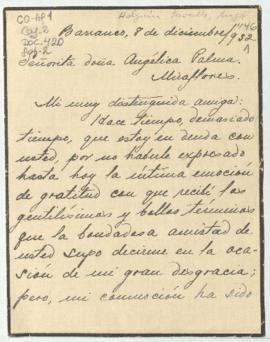 Barranco, 8 de diciembre/
932
Señorita doña Angélica Palma.
Miraflores.
Mi muy distinguida amiga:
Hace tiempo, demasiado
tiempo, que estoy en deuda con
usted, por no haberle expresado
hasta hoy la íntima emoción
de gratitud con que recibí los
gentilísimos y bellos términos
que la bondadosa amistad de
usted supo decirme en la oca-
sión de mi gran desgracia;
pero, mi conmoción ha sido